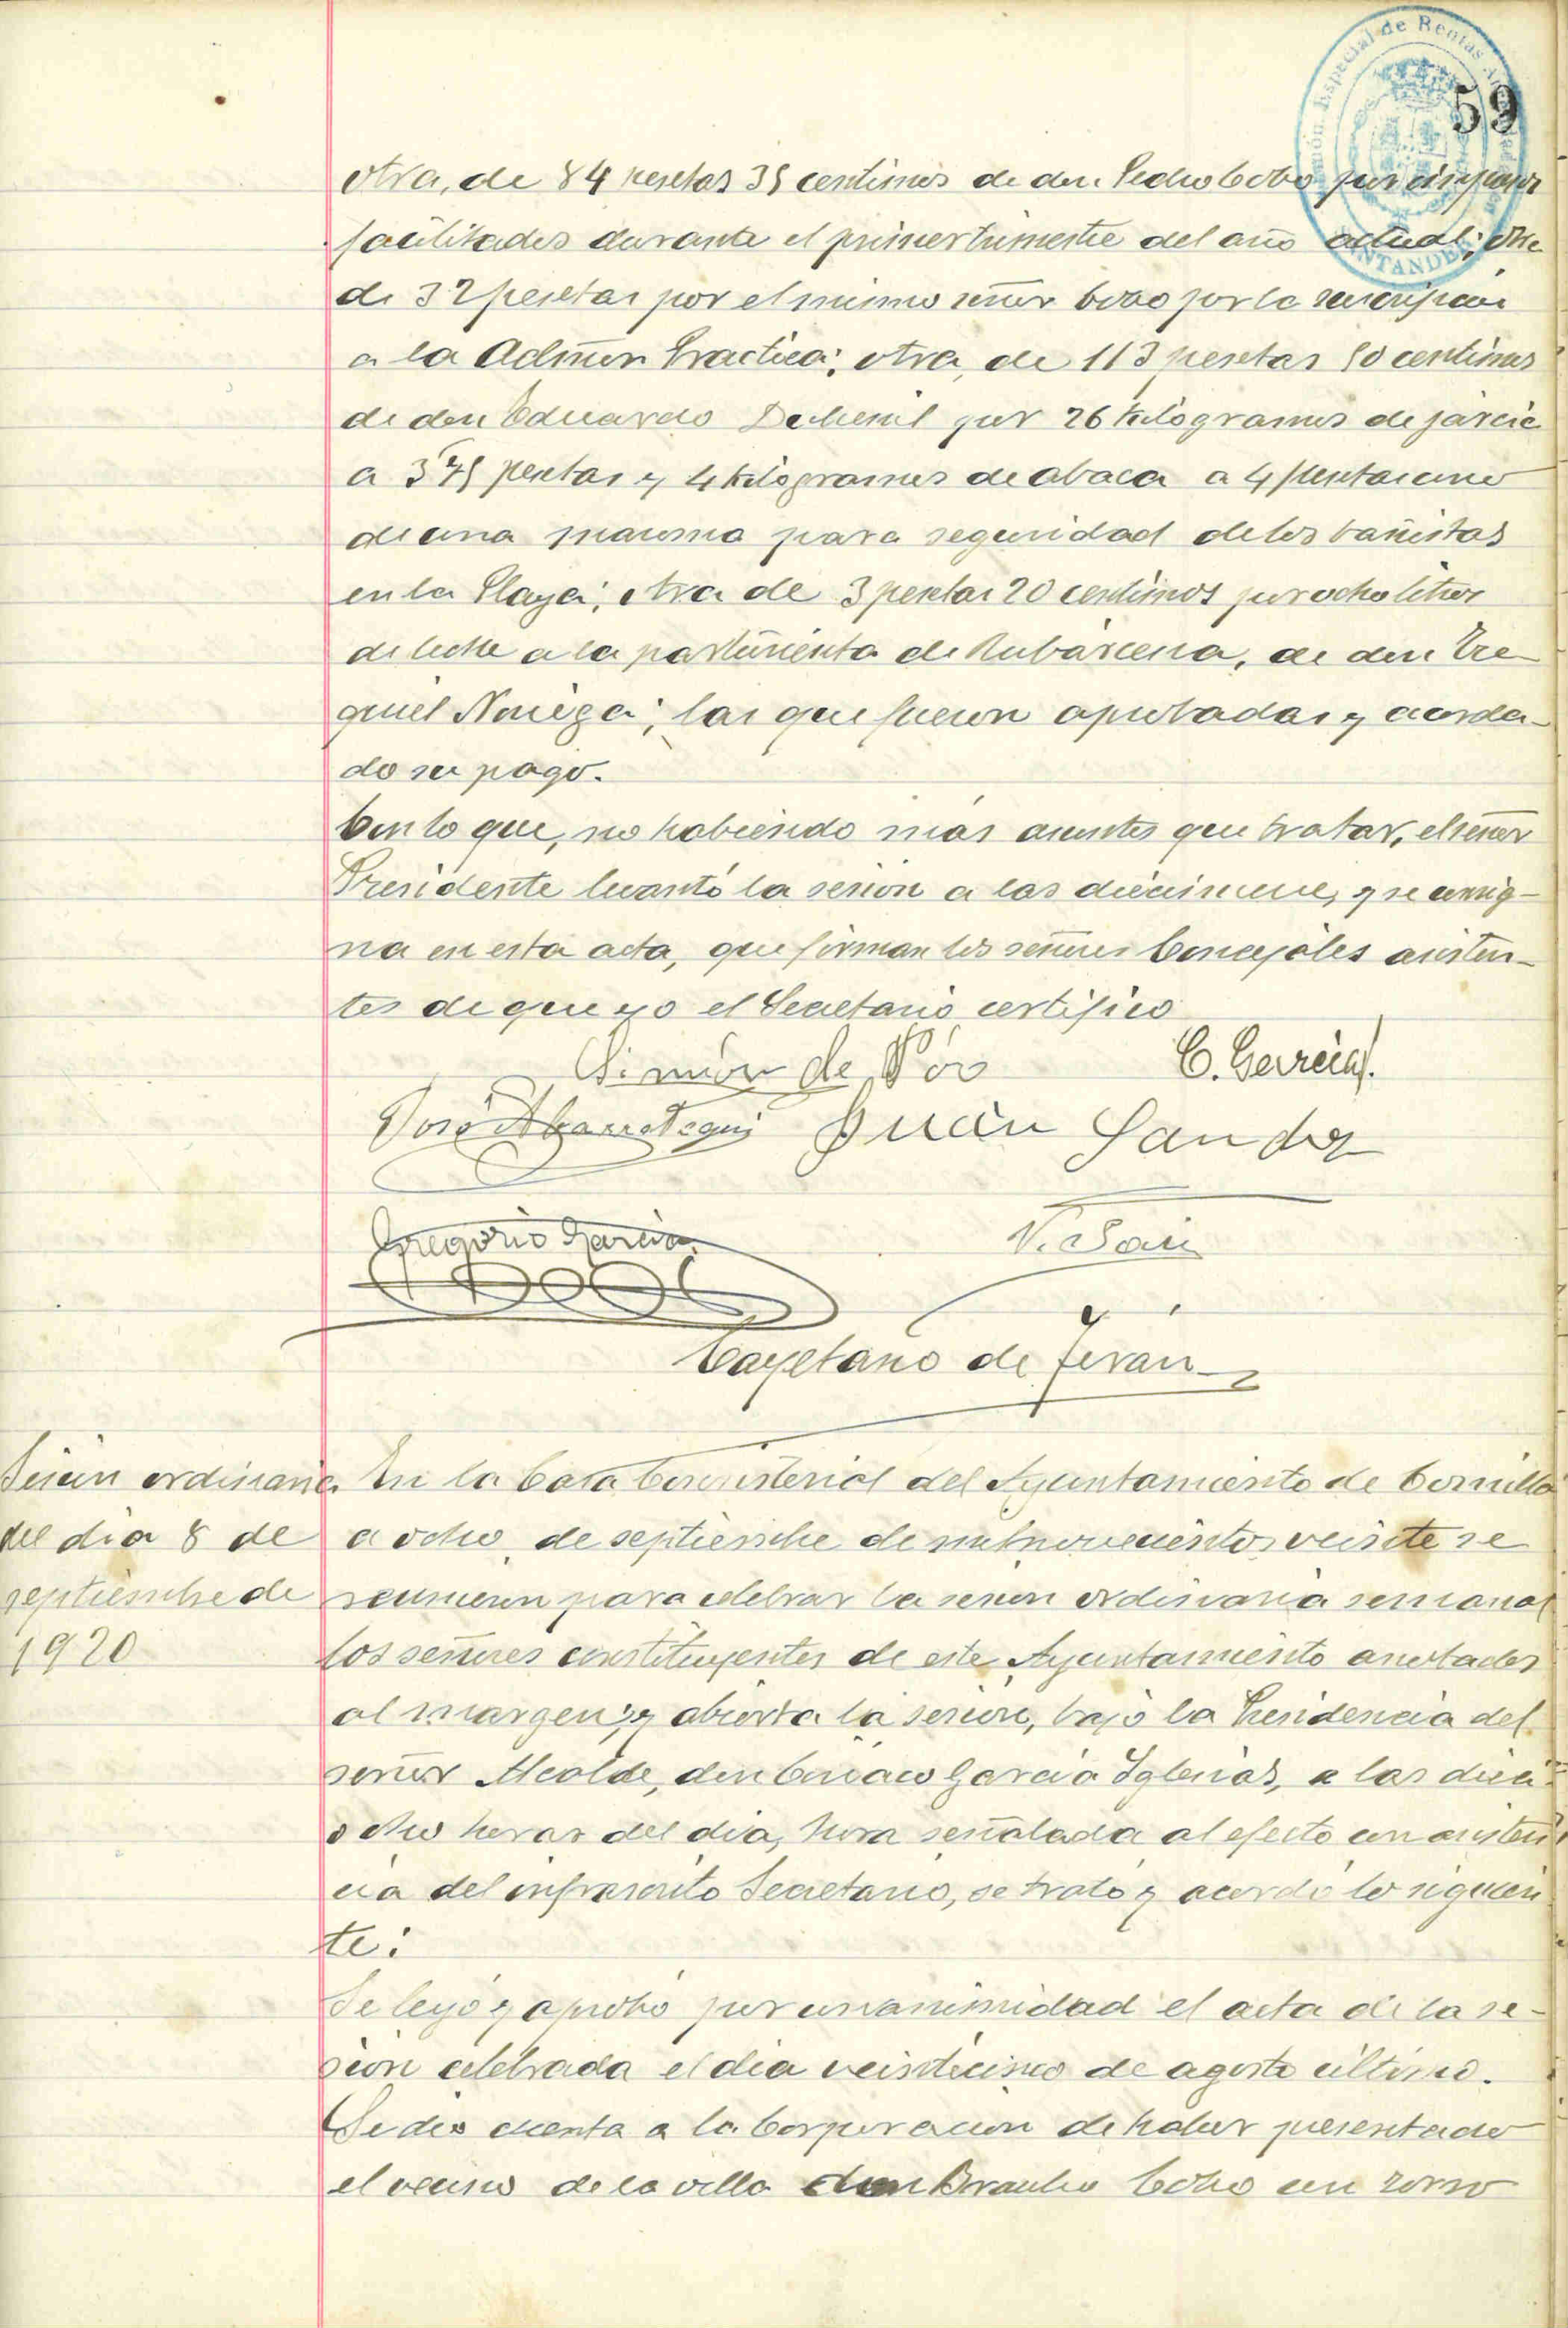 59
otra, de 84 pesetas 35 centimos de don Pedro Cobo por impresos
facilitados durante el primer trimestre del año actual; otra
de 32 pesetas por el mismo señor Cobo por la suscripcion
a la Admon Practica; otra, de 113 pesetas 50 centimos
de don Eduardo por 26 kilogramos de jarcia
a 3'75 pesetas y 4 kilogramos de abaca a 4 pesetas uno
de una maroma para seguridad de los bañistas
en la Playa; otra de 3 pesetas 20 centimos por ocho litros
de leche a la parturienta de Rubárcena, de don Eze-
quiel Noriega; las que fueron aprobadas y acorda-
do su pago.
Con lo que, no habiendo más asuntos que tratar, el señor
Presidente levantó la sesion a las diecinueve, y se consig-
na en esta acta, que firman los señores Concejales asisten-
tes de que yo el Secretario certifico
Simón de Póo C. Garcia
José Abarrategui Juán Sanchez
Gregorio Garcia
V. Sain
Cayetano de Terán
Sesión ordinaria
del dia 8 de
septiembre de
1920
En la Casa Consistorial del Ayuntamiento de Comillas
a ocho de septiembre de mil novecientos veinte se
reunieron para celebrar la sesion ordinaria semanal
los señores constituyentes de este Ayuntamiento anotados
al margen; y abierta la sesion, bajo la Presidencia del
señor Alcalde, don Ciriaco Garcia Iglesias, a las dieci-
ocho horas del dia, hora señalada al efecto con asisten
cia del infrascrito Secretario, se trató y acordó lo siguien
te:
Se leyó y aprobó por unanimidad el acta de la se-
sion celebrada el dia veinticinco de agosto último.
Se dió cuenta a la Corporacion de haber presentado
el vecino de la villa don Braulio Cobo un zorro